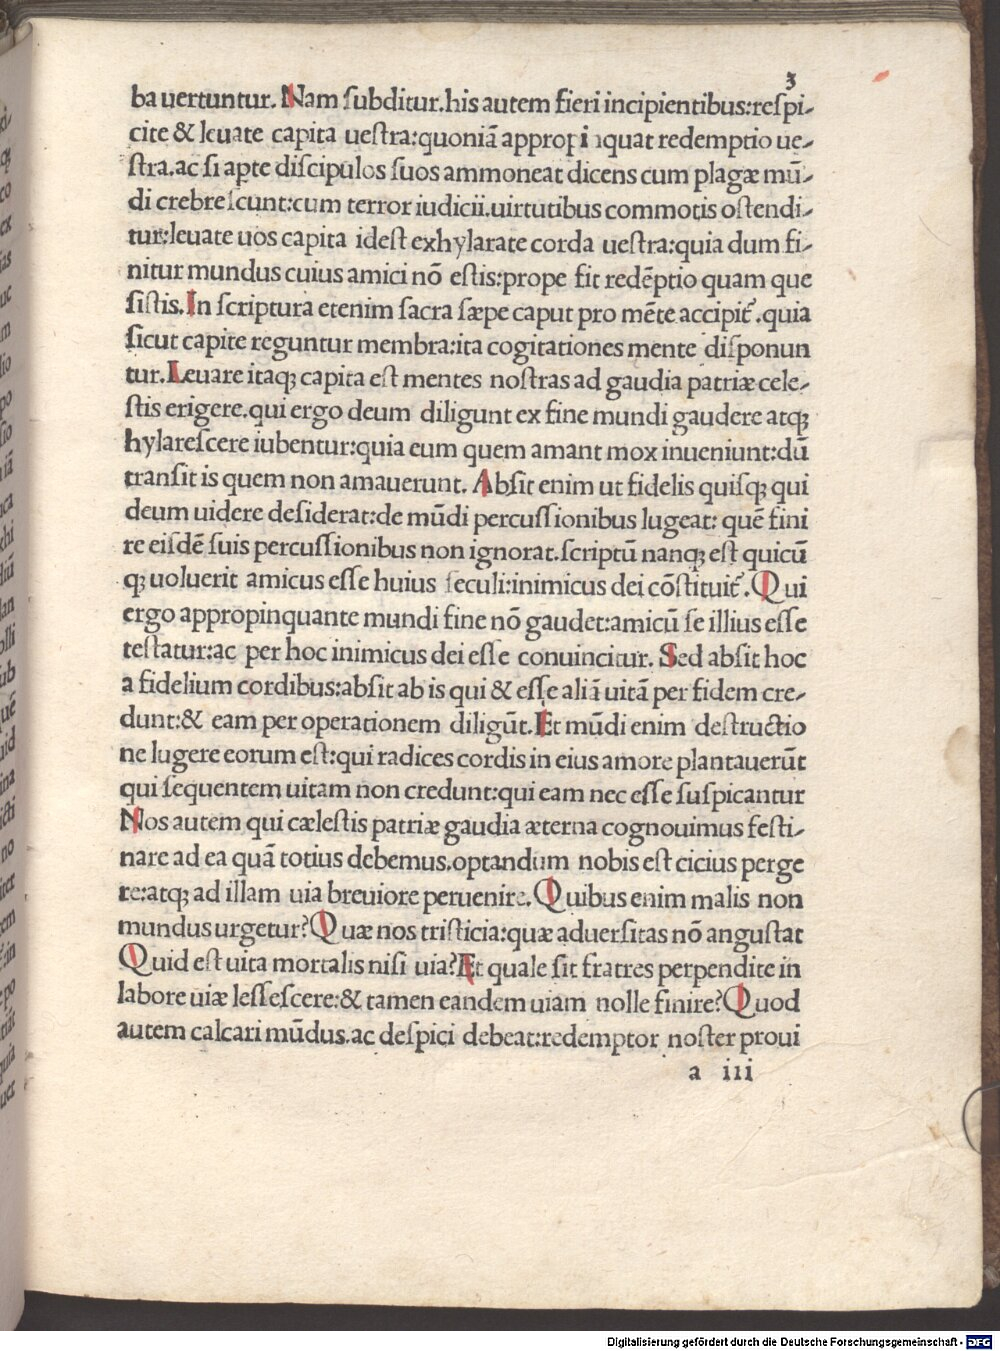 3
ba uertuntur. Nam ſubditur.his autem fieri incipientibus:reſpi-
cite & leuate capita ueſtra:quoniā appropi nquat redemptio ue-
ſtra.ac ſi apte diſcipulos ſuos ammoneat dicens cum plagæ mū-
di crebreſcunt:cum terror iudicii.uirtutibus commotis oſtendi-
tur:leuate uos capita ideſt exhylarate corda ueſtra:quia dum fi-
nitur mundus cuius amici nō eſtis:prope fit redēptio quam que
ſiſtis.In ſcriptura etenim ſacra ſæpe caput pro mēte accipit᷑.quia
ſicut capite reguntur membra:ita cogitationes mente diſponun
tur.Leuare itaqꝫ capita eſt mentes noſtras ad gaudia patriæ cele-
ſtis erigere.qui ergo deum diligunt ex fine mundi gaudere atqꝫ
hylareſcere iubentur:quia eum quem amant mox inueniunt:dū
tranſit is quem non amauerunt. Abſit enim ut fidelis quiſqꝫ qui
deum uidere deſiderat:de mūdi percuſſionibus lugeat: quē fini
re eiſdē ſuis percuſſionibus non ignorat.ſcriptū nanqꝫ eſt quicū
qꝫ uoluerit amicus eſſe huius ſeculi:inimicus dei cōſtituit᷑.Qui
ergo appropinquante mundi fine nō gaudet:amicū ſe illius eſſe
teſtatur:ac per hoc inimicus dei eſſe conuincitur. Sed abſit hoc
a fidelium cordibus:abſit ab is qui & eſſe aliā uitā per fidem cre-
dunt:& eam per operationem diligūt.Et mūdi enim deſtructio
ne lugere eorum eſt:qui radices cordis in eius amore plantauerūt
qui ſequentem uitam non credunt:qui eam nec eſſe ſuſpicantur
Nos autem qui cæleſtis patriæ gaudia æterna cognouimus feſti-
nare ad ea quā totius debemus.optandum nobis eſt cicius perge
re:atqꝫ ad illam uia breuiore peruenire.Quibus enim malis non
mundus urgetur?Quæ nos triſticia:quæ aduerſitas nō anguſtat
Quid eſt uita mortalis niſi uia?Et quale ſit fratres perpendite in
labore uiæ leſſeſcere:& tamen eandem uiam nolle finire?Quod
autem calcari mūdus.ac deſpici debeat:redemptor noſter proui
a iii
Digitalisierung gefördert durch die Deutsche Forschungsgemeinschaft - DFG